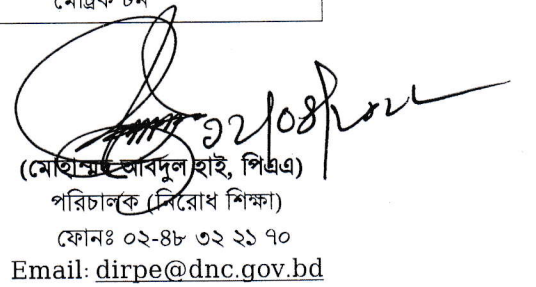 মেট্রিক টন
১২/০৪/২০২২
(মোহাম্মদ আবদুল হাই, পিএএ)
পরিচালক (নিরোধ শিক্ষা)
ফোনঃ ০২-৪৮ ৩২ ২১ ৭০
Email: dirpe@dnc.gov.bd